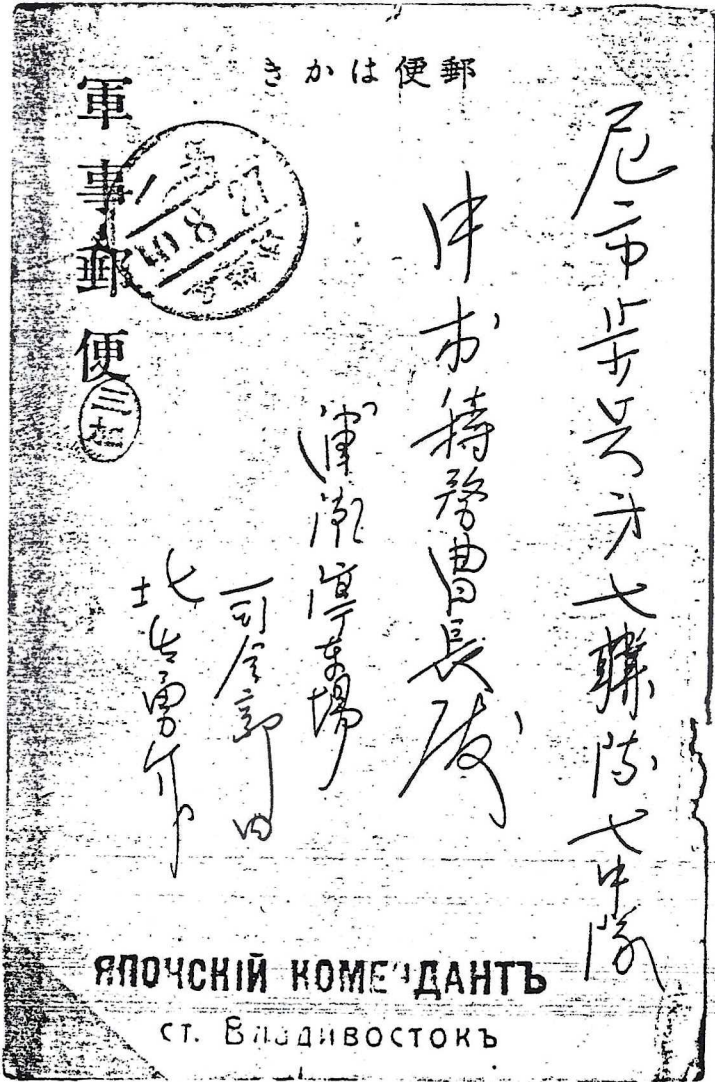 郵便はかき
軍事郵便
尼市歩兵才七聯隊七中隊
中村特務曹長殿
浦潮停車場
司令部内
ЯПОНСКІЙ КОМЕНДАНТЪ
ст. Владивостокъ